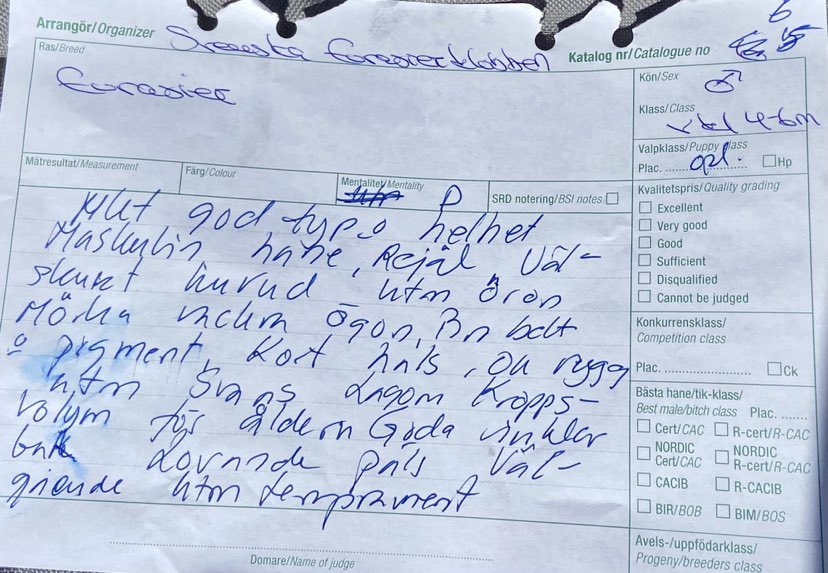 Arrangör/Organizer Svenska Eurasierklubben
Katalog nr/Catalogue no 6
Ras/Breed
Eurasier
Kön/Sex ♂
Klass/Class
4-6m
Valpklass/Puppy class
Plac. ........ ☐ Hp
Mätresultat/Measurement
Färg/Colour
Mentalitet/Mentality
P
SRD notering/BSI notes ☐
Kvalitetspris/Quality grading
☐ Excellent
☐ Very good
☐ Good
☐ Sufficient
☐ Disqualified
☐ Cannot be judged
Konkurrensklass/
Competition class
Plac. ........................ ☐ Ck
Bästa hane/tik-klass/
Best male/bitch class Plac. .......
☐ Cert/CAC ☐ R-cert/R-CAC
☐ NORDIC Cert/CAC ☐ NORDIC R-cert/R-CAC
☐ CACIB ☐ R-CACIB
☐ BIR/BOB ☐ BIM/BOS
Avels-/uppfödarklass/
Progeny/breeders class
Mkt god typ o helhet
Maskulin hane, Rejäl Väl-
skuret huvud utm öron
Mörka ögon, Bn bett
o pigment, Kort hals, ok rygg
utm Svans Lagom Kropps-
volym för åldern Goda vinklar
bak Lovande päls Väl-
gående utm temprament
Domare/Name of judge